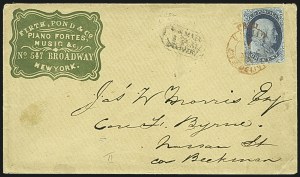 FIRTH, POND & Co.
PIANO FORTES,
MUSIC &c.
No. 547 BROADWAY
NEW YORK.
Jas W Morris Esq
Care F. Byrne
Nassau St
cor Beekman